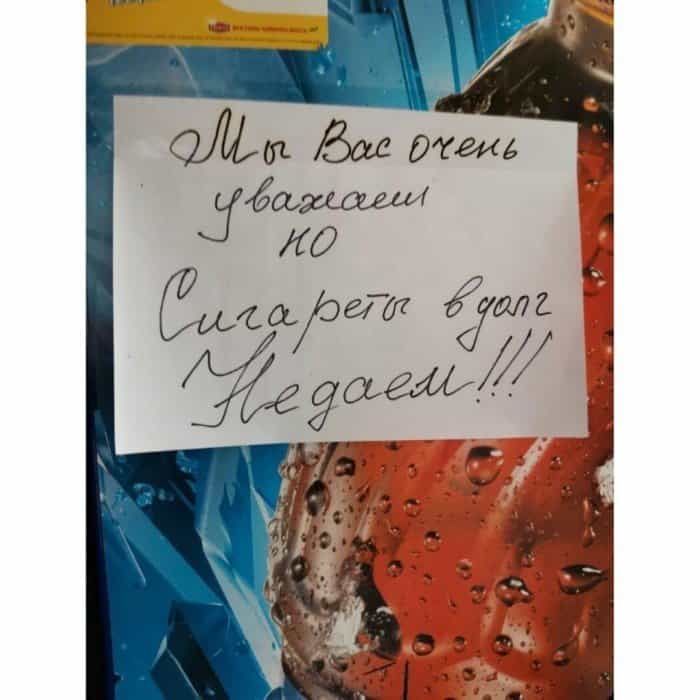 Мы Вас очень
уважаем
но
Сигареты в долг
Недаем!!!